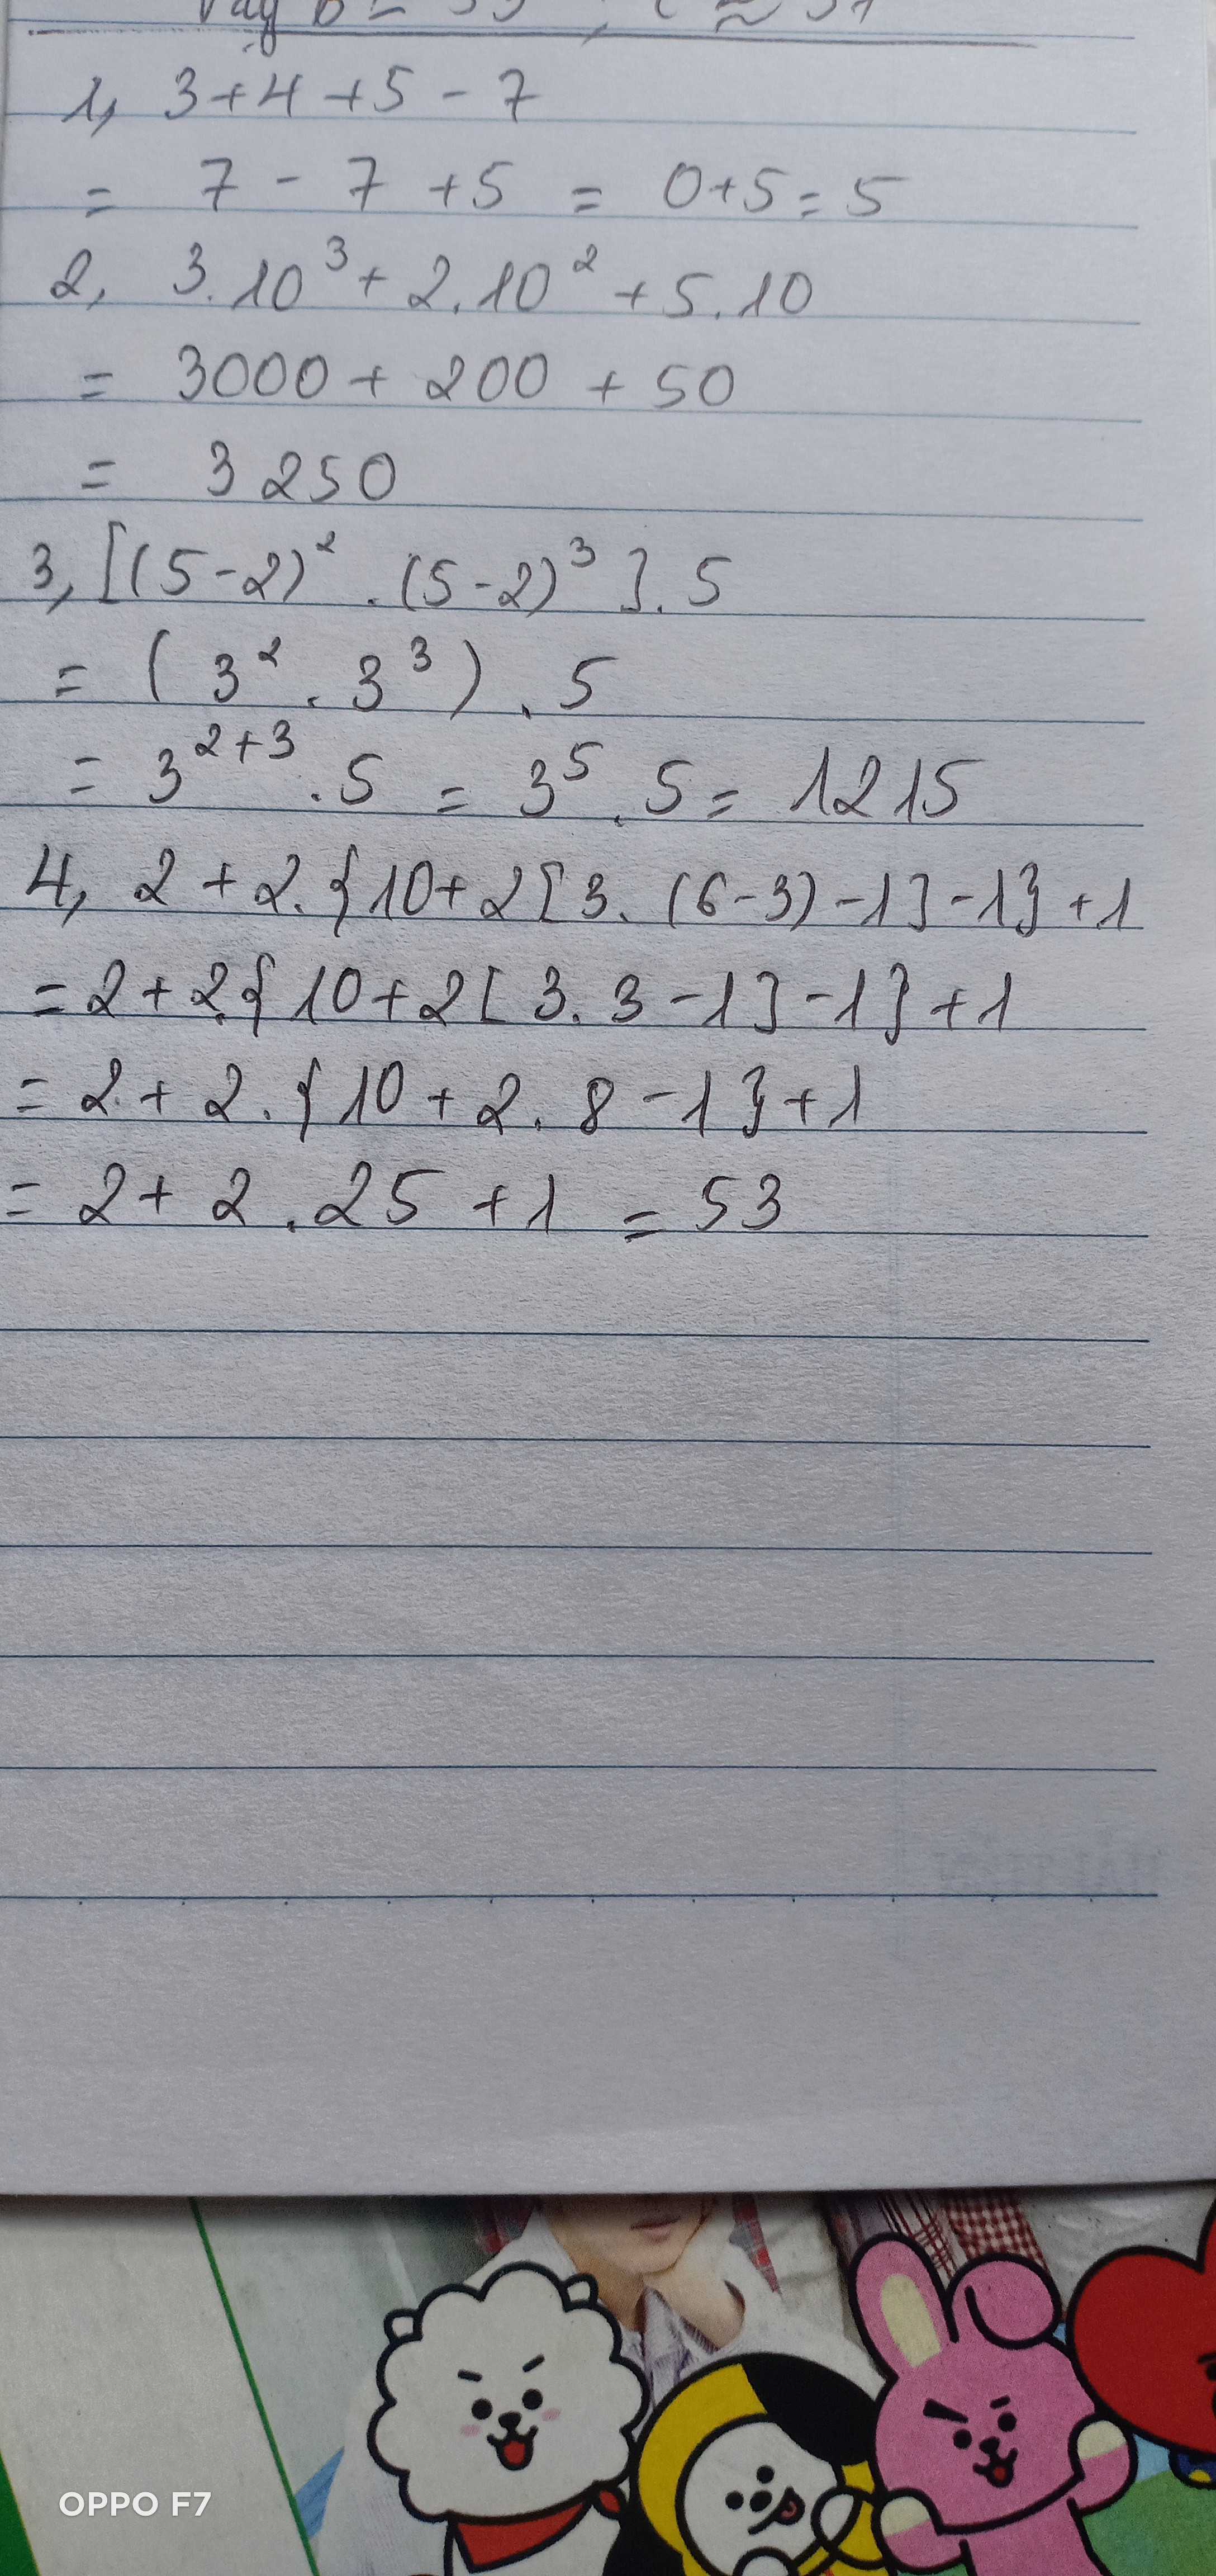 1, 3+4+5-7
= 7 - 7 +5 = 0+5=5
2, 3.10³ + 2.10² + 5.10
= 3000 + 200 + 50
= 3250
3, [(5-2)² . (5-2)³]. 5
= (3² . 3³) . 5
= 3²⁺³ . 5 = 3⁵ . 5 = 1215
4, 2 + 2. {10+2[3. (6-3) -1] -1} +1
= 2 + 2.{10+2[3. 3 -1] -1} +1
= 2 + 2. {10 + 2. 8 -1} +1
= 2 + 2 . 25 + 1 = 53
OPPO F7